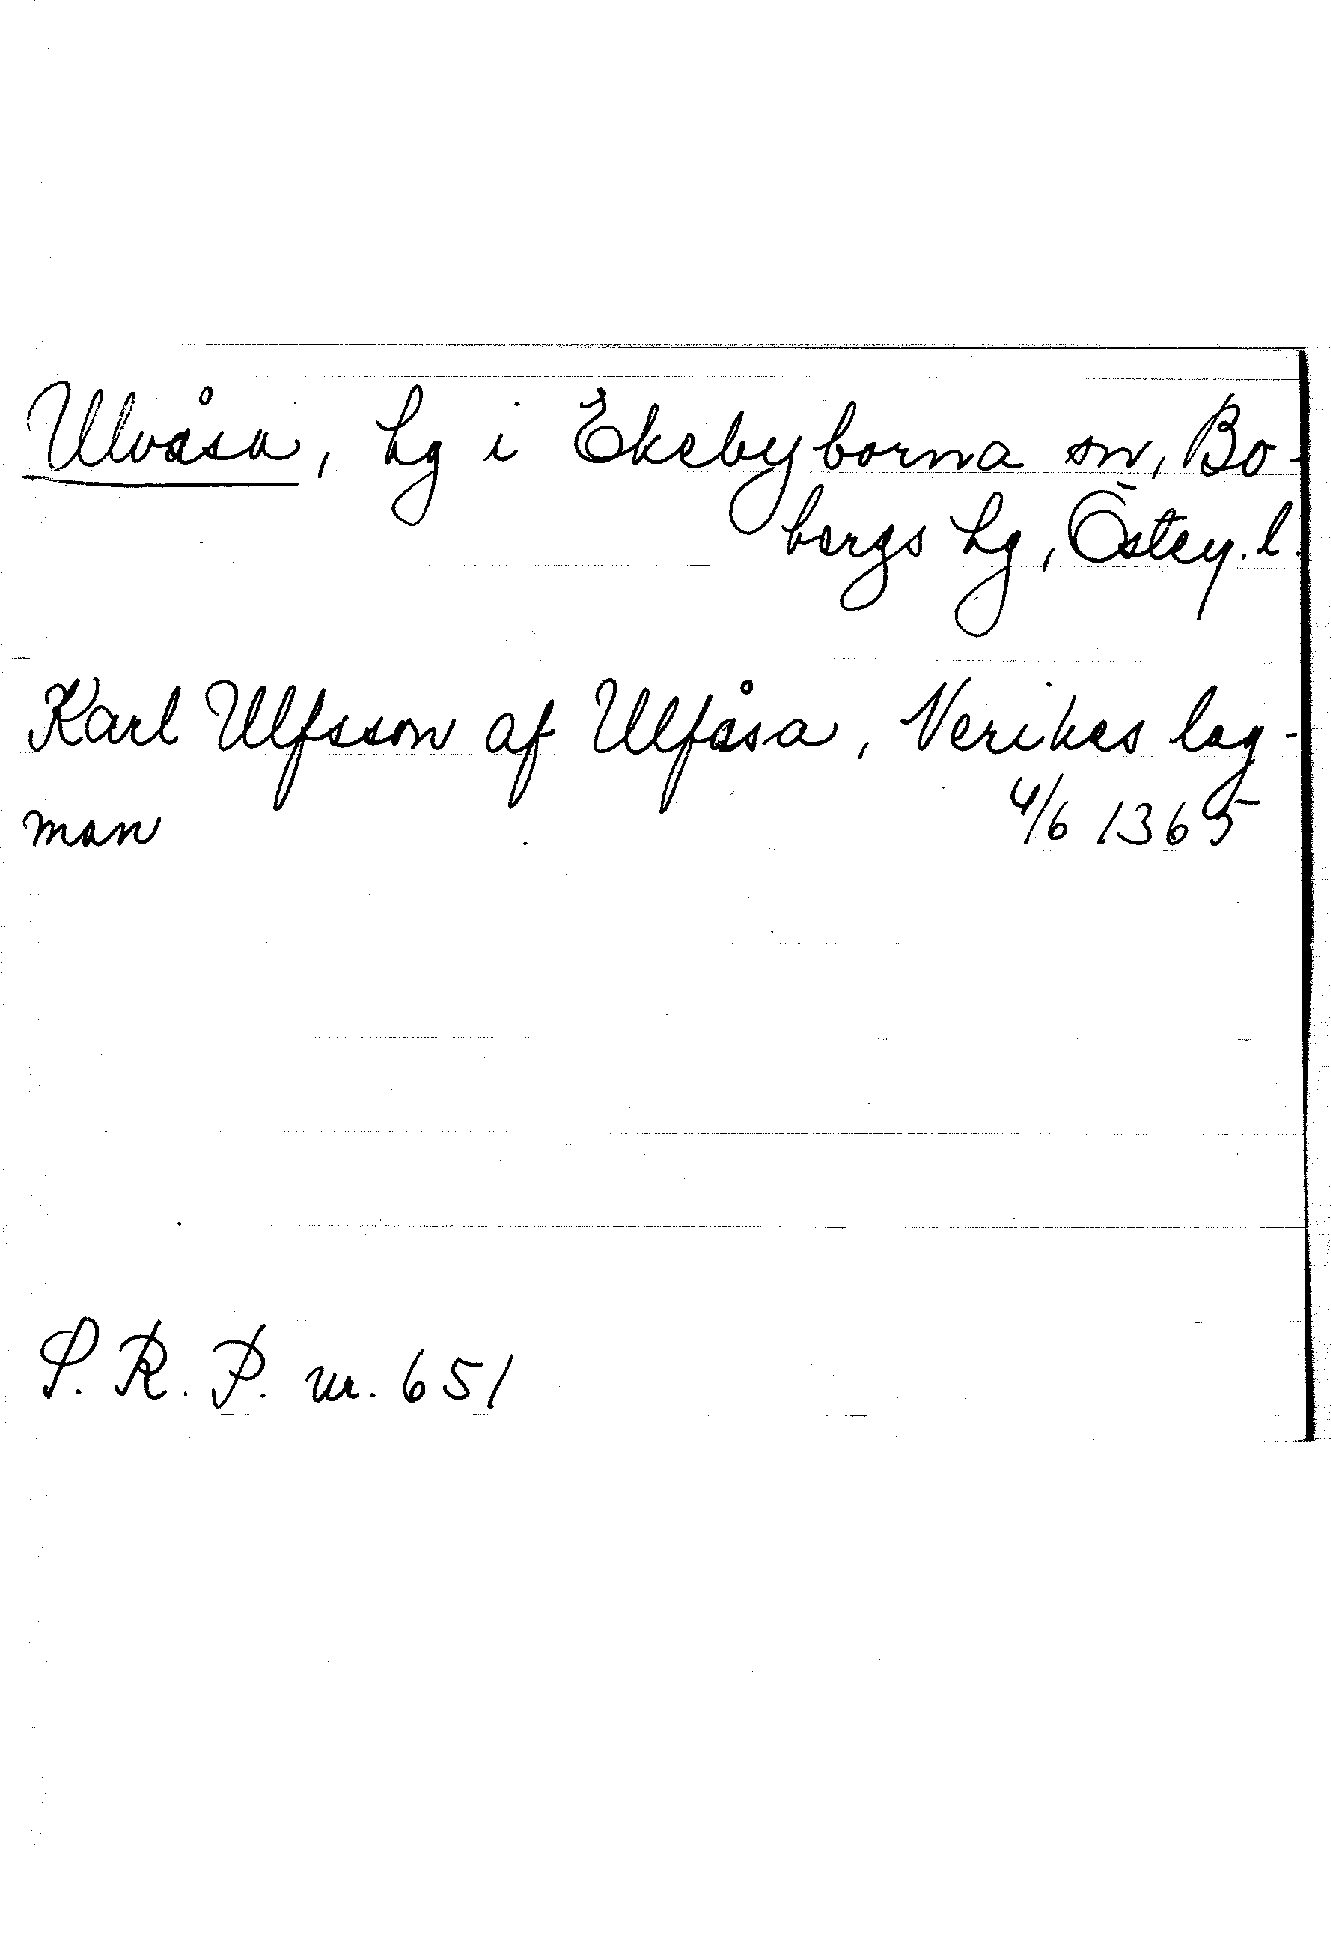 Ulvåsa, hg i Ekebyborna sn, Bo-
bergs hg, Östcg. l.
Karl Ulfsson af Ulfåsa, Nerikes lag-
man 4/6 1365
S. R. P. nr. 651